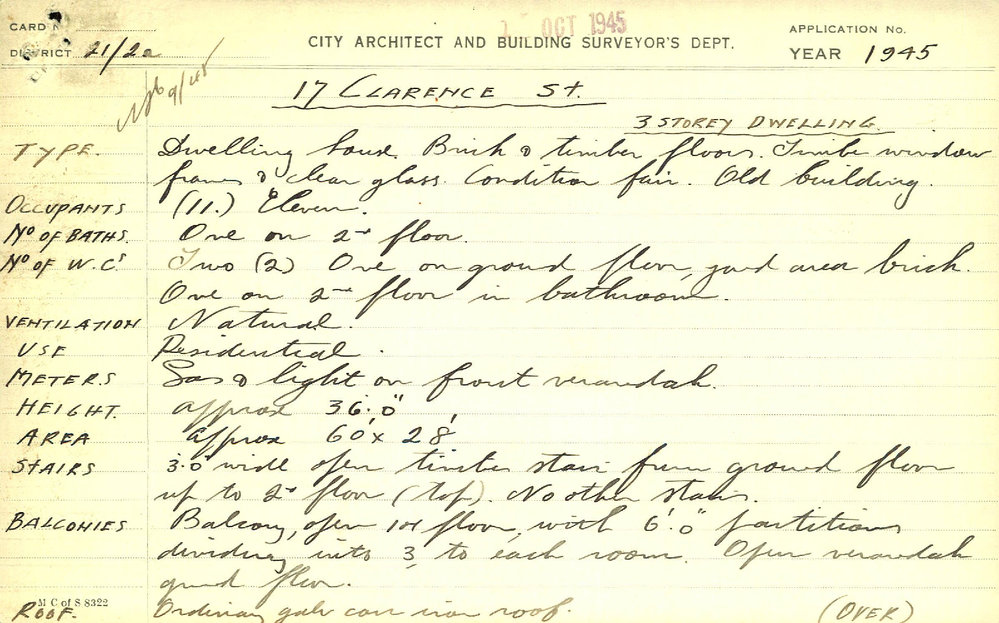 CARD N
OCT 1945
APPLICATION No.
DISTRICT 21/2a
CITY ARCHITECT AND BUILDING SURVEYOR'S DEPT.
YEAR 1945
9/45
17 CLARENCE St.
3 STOREY DWELLING.
TYPE. Dwelling house. Brick & timber floors. Timber window
frames & clear glass. Condition fair. Old building.
OCCUPANTS (11.) Eleven.
No OF BATHS. One on 2nd floor.
No OF W.Cs Two (2) One on ground floor, yard area brick.
One on 2nd floor in bathroom.
VENTILATION Natural.
USE Residential.
METERS Gas & light on front verandah.
HEIGHT. approx 36'.0"
AREA approx 60' x 28'
STAIRS 3'.0" wide open timber stair from ground floor
up to 2nd floor (top). No other stairs.
BALCONIES Balcony, open 1st floor, with 6'.0" partitions
dividing into 3, to each room. Open verandah
grnd floor.
M C of S 8322
ROOF. Ordinary galv corr iron roof. (OVER)